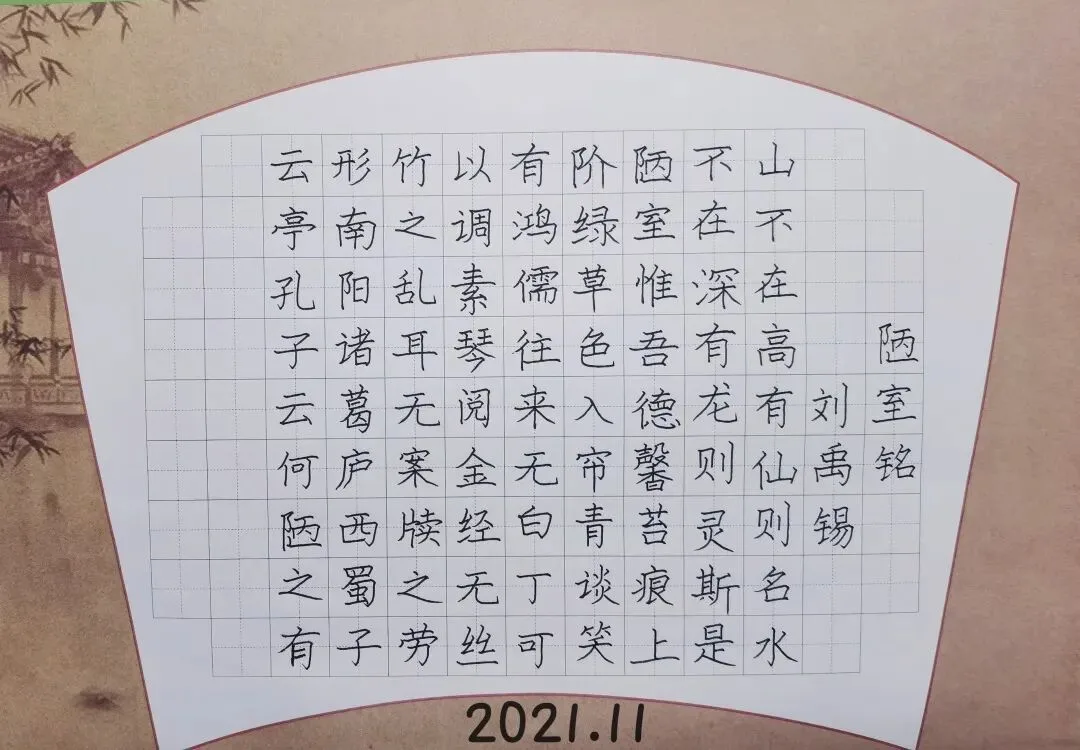 陋室铭
刘禹锡
山不在高有仙则名水
不在深有龙则灵斯是
陋室惟吾德馨苔痕上
阶绿草色入帘青谈笑
有鸿儒往来无白丁可
以调素琴阅金经无丝
竹之乱耳无案牍之劳
形南阳诸葛庐西蜀子
云亭孔子云何陋之有
2021.11